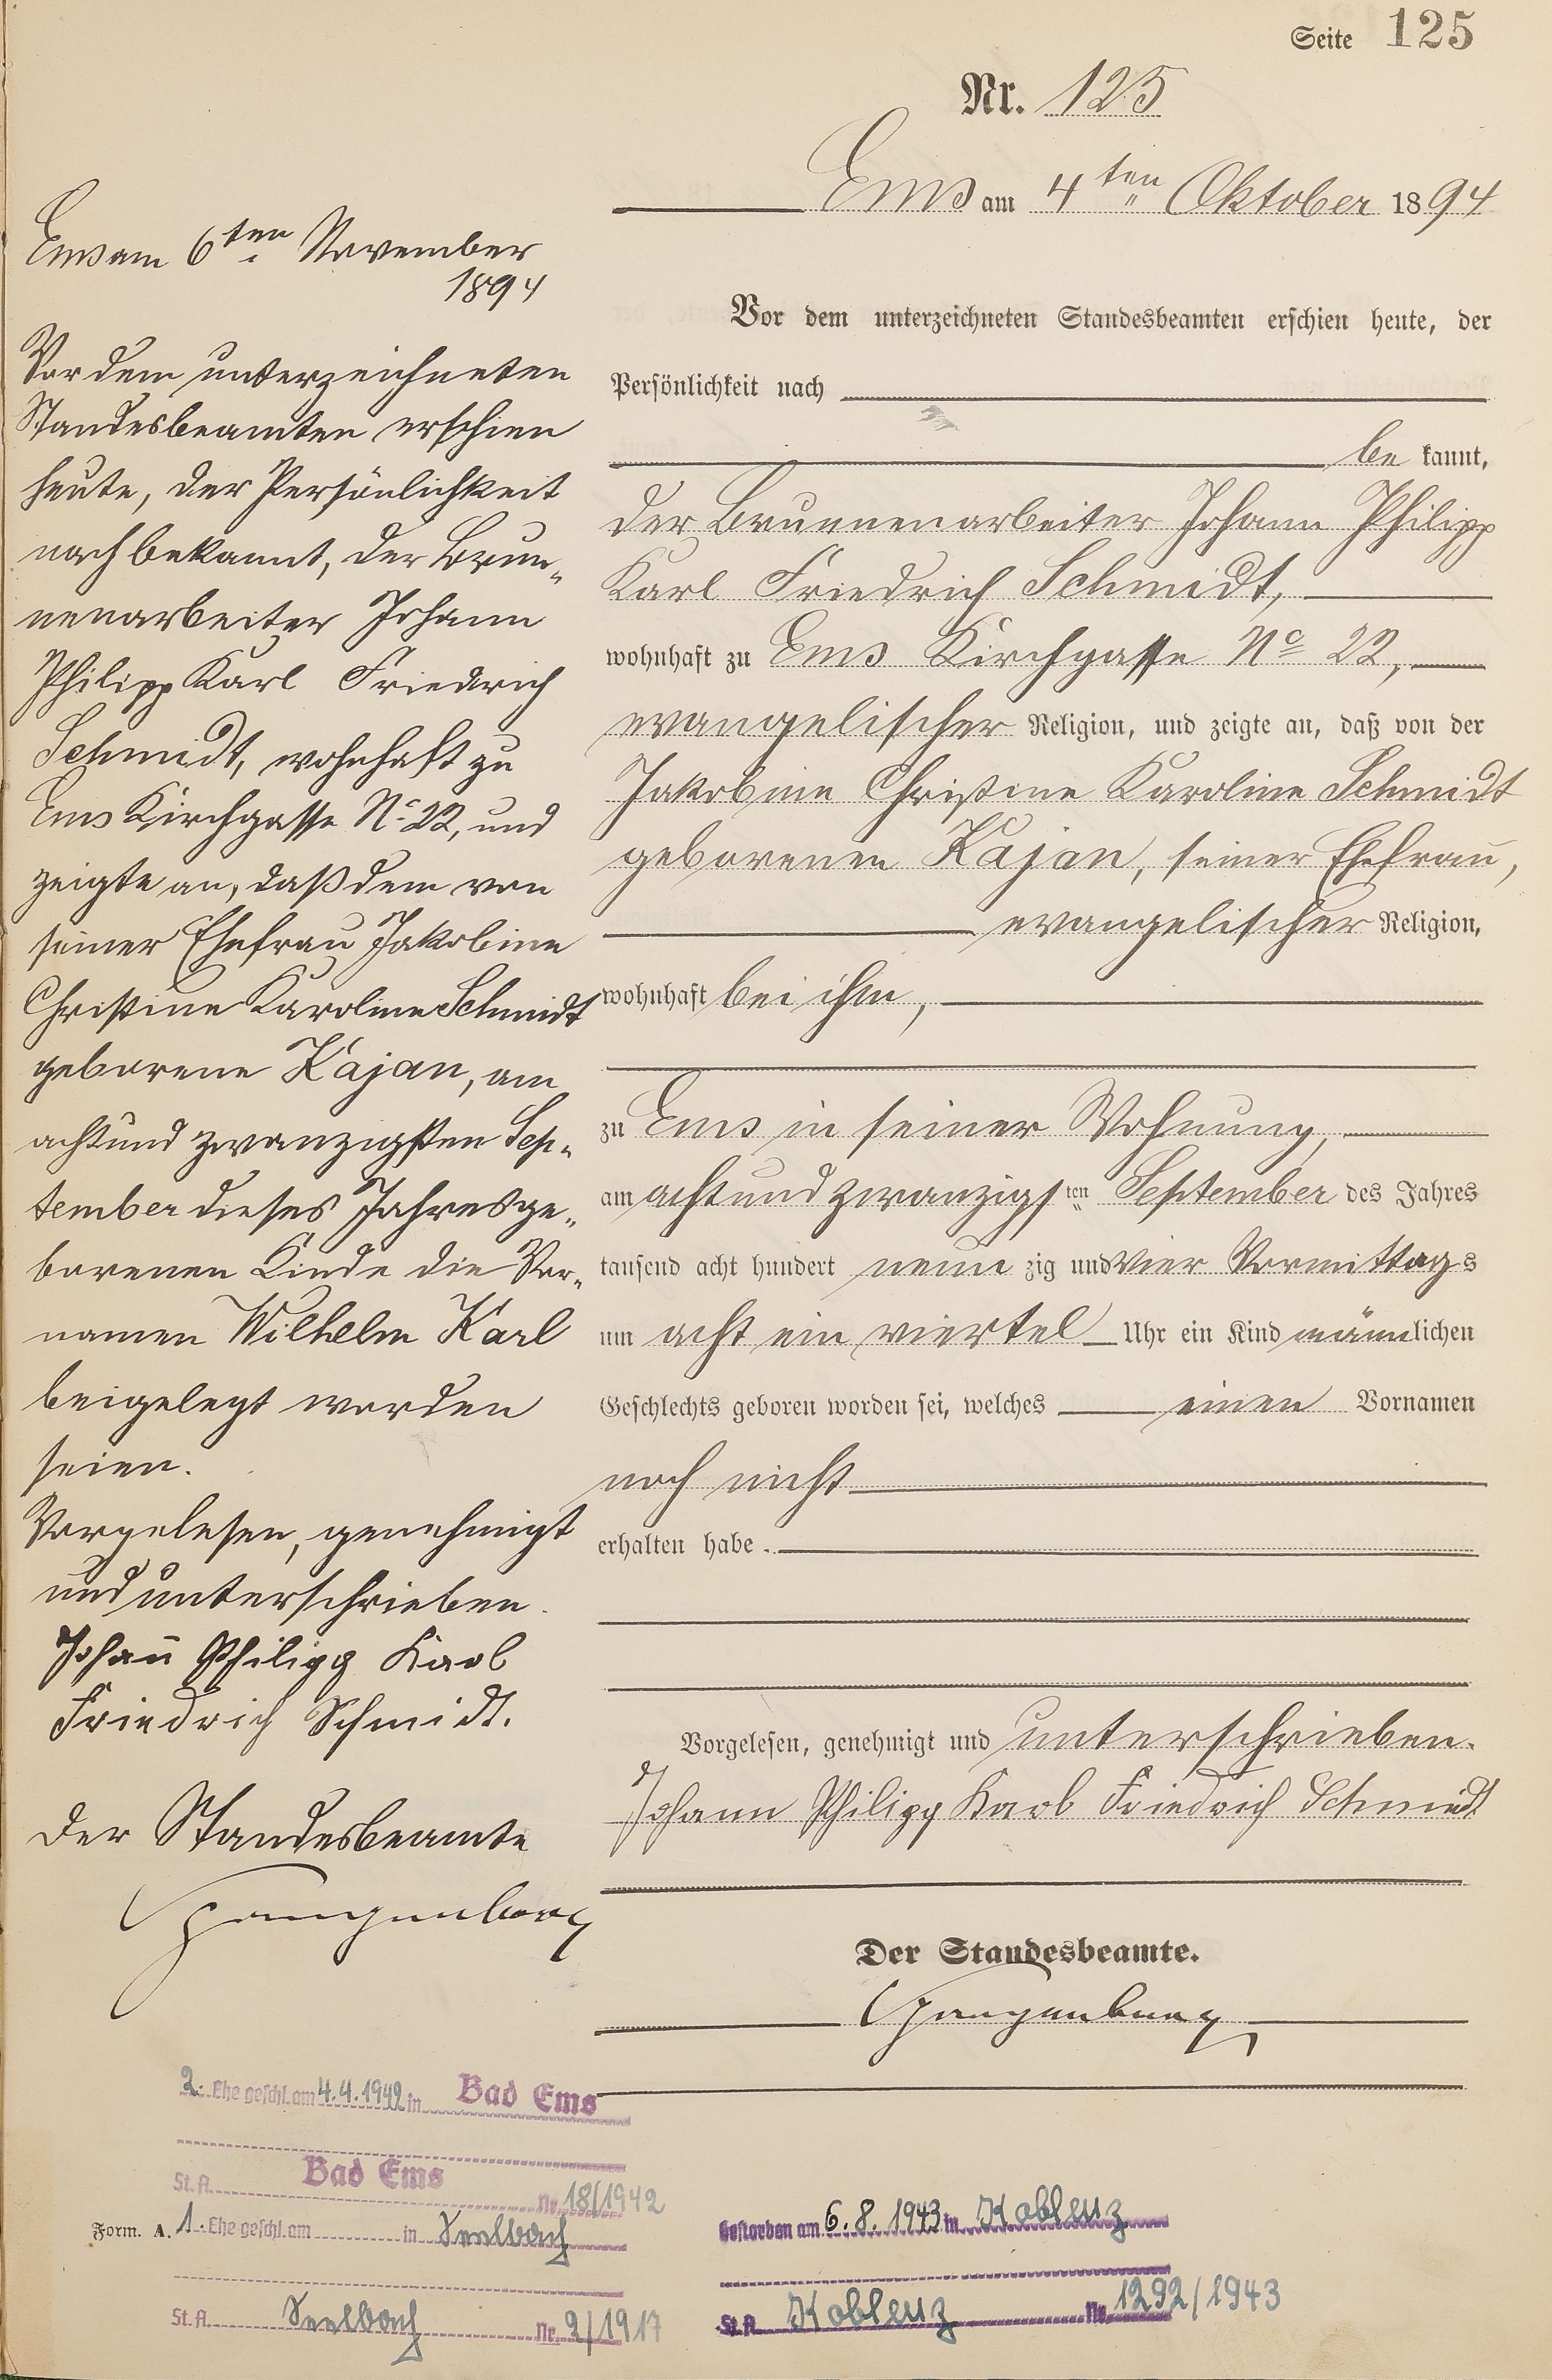 Seite 125
Nr. 125
Ems am 4ten Oktober 1894
Vor dem unterzeichneten Standesbeamten erschien heute, der
Persönlichkeit nach
be kannt,
der Brunnenarbeiter Johann Philipp
Karl Friedrich Schmidt,
wohnhaft zu Ems Kirchgasse No 22,
evangelischer Religion, und zeigte an, daß von der
Jakobine Christine Karoline Schmidt
geborenen Kajan, seiner Ehefrau,
evangelischer Religion,
wohnhaft bei ihm,
zu Ems in seiner Wohnung,
am achtundzwanzigsten September des Jahres
tausend acht hundert neun zig und vier Vormittags
um acht ein viertel Uhr ein Kind männlichen
Geschlechts geboren worden sei, welches einen Vornamen
noch nicht
erhalten habe.
Vorgelesen, genehmigt und unterschrieben.
Johann Philipp Karl Friedrich Schmidt
Der Standesbeamte.
Ems am 6ten November
1894
Vor dem unterzeichneten
Standesbeamten erschien
heute, der Persönlichkeit
nach bekannt, der Brun-
nenarbeiter Johann
Philipp Karl Friedrich
Schmidt, wohnhaft zu
Ems Kirchgasse No 22, und
zeigte an, daß dem von
seiner Ehefrau Jakobine
Christine Karoline Schmidt
geborene Kajan, am
achtund zwanzigsten Sep-
tember dieses Jahres ge-
borenen Kinde die Vor-
namen Wilhelm Karl
beigelegt worden
seien.
Vorgelesen, genehmigt
und unterschrieben.
Johann Philipp Karl
Friedrich Schmidt.
Der Standesbeamte
2. Ehe geschl. am 4.4.1942 in Bad Ems
St. A. Bad Ems Nr. 18/1942
Form. A.
1. Ehe geschl. am in Seelbach
St. A. Seelbach Nr. 2/1917
Gestorben am 6.8.1943 in Koblenz
St. A. Koblenz Nr. 1292/1943